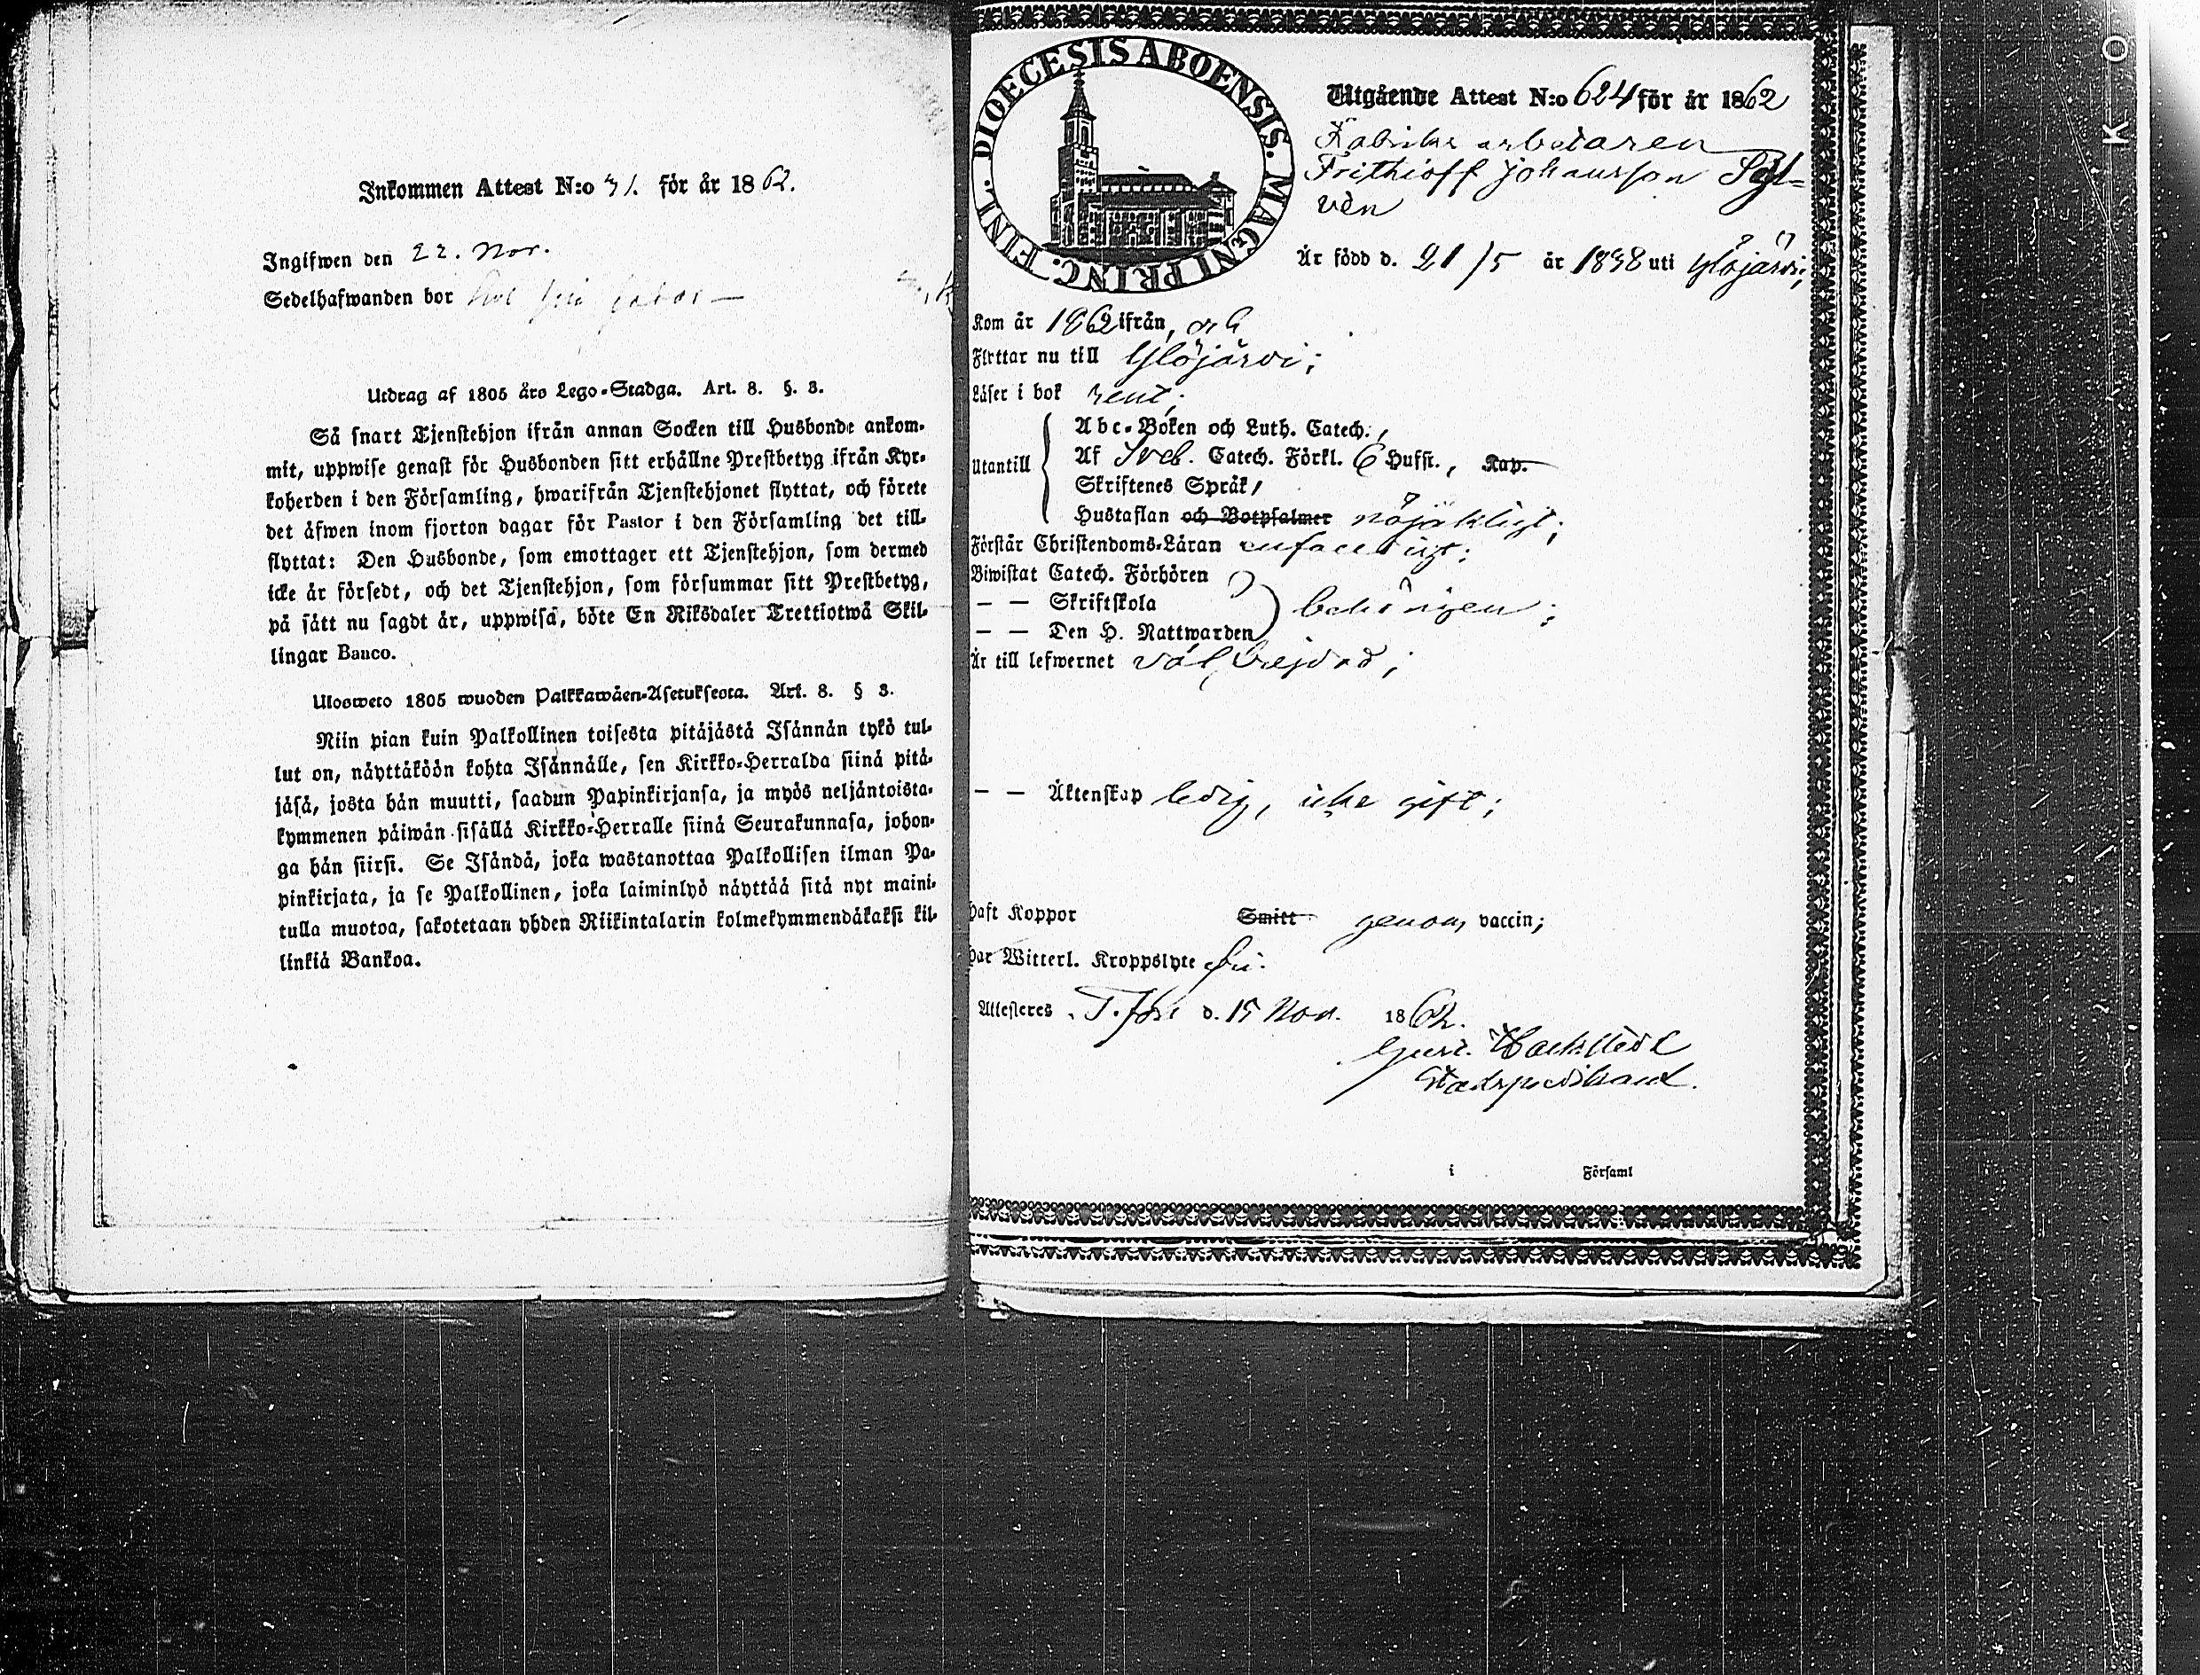 Inkommen Attest N:o 31. för år 1862.
Ingifwen den 22. Nov.
Sedelhafwanden bor
Utdrag af 1805 års Lego-Stadga. Art. 8. §. 3.
Så snart Tjenstehjon ifrån annan Socken till Husbonde ankom-
mit, uppwise genast för Husbonden sitt erhållne Prestbetyg ifrån Kyr-
koherden i den Församling, hwarifrån Tjenstehjonet flyttat, och förete
det äfwen inom fjorton dagar för Pastor i den Församling det till-
flyttat: Den Husbonde, som emottager ett Tjenstehjon, som dermed
icke är försedt, och det Tjenstehjon, som försummar sitt Prestbetyg,
på sätt nu sagdt är, uppwisa, böte En Riksdaler Trettiotwå Skil-
lingar Banco.
Ulosweto 1805 wuoden Palkkawäen-Asetuksesta. Art. 8. § 3.
Niin pian kuin Palkollinen toisesta pitäjästä Isännän tykö tul-
lut on, näyttäköön kohta Isännälle, sen Kirkko-Herralda siinä pitä-
jäsä, josta hän muutti, saadun Papinkirjansa, ja myös neljäntoista-
kymmenen päiwän sisällä Kirkko-Herralle siinä Seurakunnasa, johon-
ga hän siirsi. Se Isändä, joka wastanottaa Palkollisen ilman Pa-
pinkirjata, ja se Palkollinen, joka laiminlyö näyttää sitä nyt maini-
tulla muotoa, sakotetaan yhden Riikintalarin kolmekymmendäkaksi kil-
linkiä Bankoa.
DIOECESIS ABOENSIS. MAGNI PRINC. FINL.
Utgående Attest N:o 624 för år 1862
Fabriks arbetaren
Frithioff Johansson Syl-
vèn
Är född d. 21/5 år 1838 uti Ylöjärvi;
Kom år 1862 ifrån, och
Flyttar nu till Ylöjärvi;
Läser i bok rent;
Utantill
Abc-Boken och Luth. Catech.,
Af Sveb. Catech. Förkl. 6 Hufst., Kap.
Skriftenes Språk,
Hustaflan och Botpsalmer nöjaktigt;
Förstår Christendoms-Läran enfaldigt;
Biwistat Catech. Förhören
— — Skriftskola behörigen;
— — Den H. Nattwarden
Är till lefwernet väl frejdad;
— — Äktenskap ledig, icke gift;
Haft Koppor Smitt genom vaccin;
Har Witterl. Kroppslyte fri.
Attesteres, T.fors d. 15 Nov. 1862.
Gust.
Stadspredikant.
i Församl